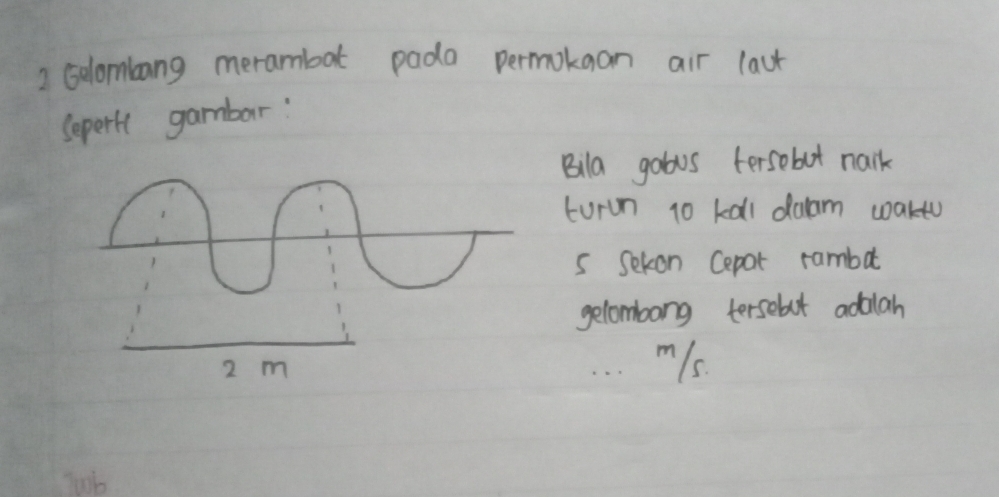 2 Gelombang merambat pada permukaan air laut
Seperti gambar:
Bila gabus tersebut naik
turun 10 kali dalam waktu
5 sekon Cepat rambat
gelombang tersebut adalah
... m/s.
2 m
Jwb